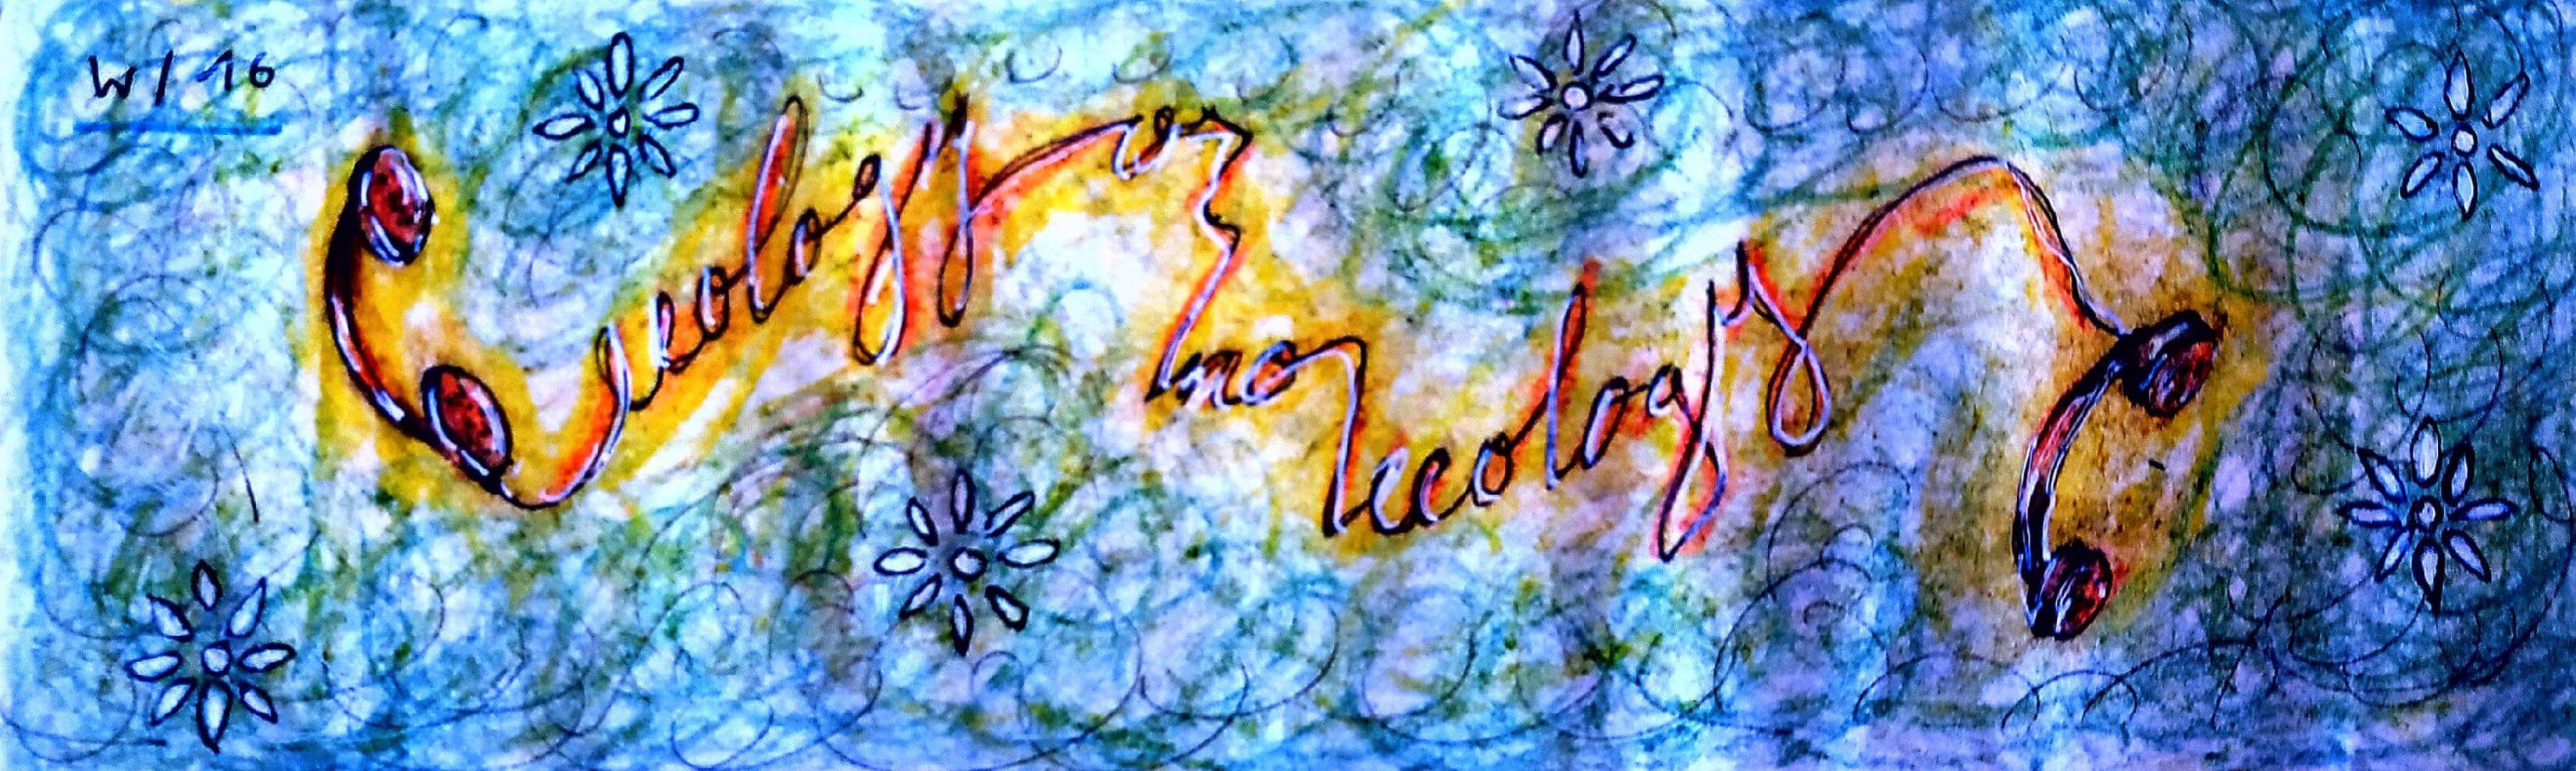 W/16
ecology or
no ecology